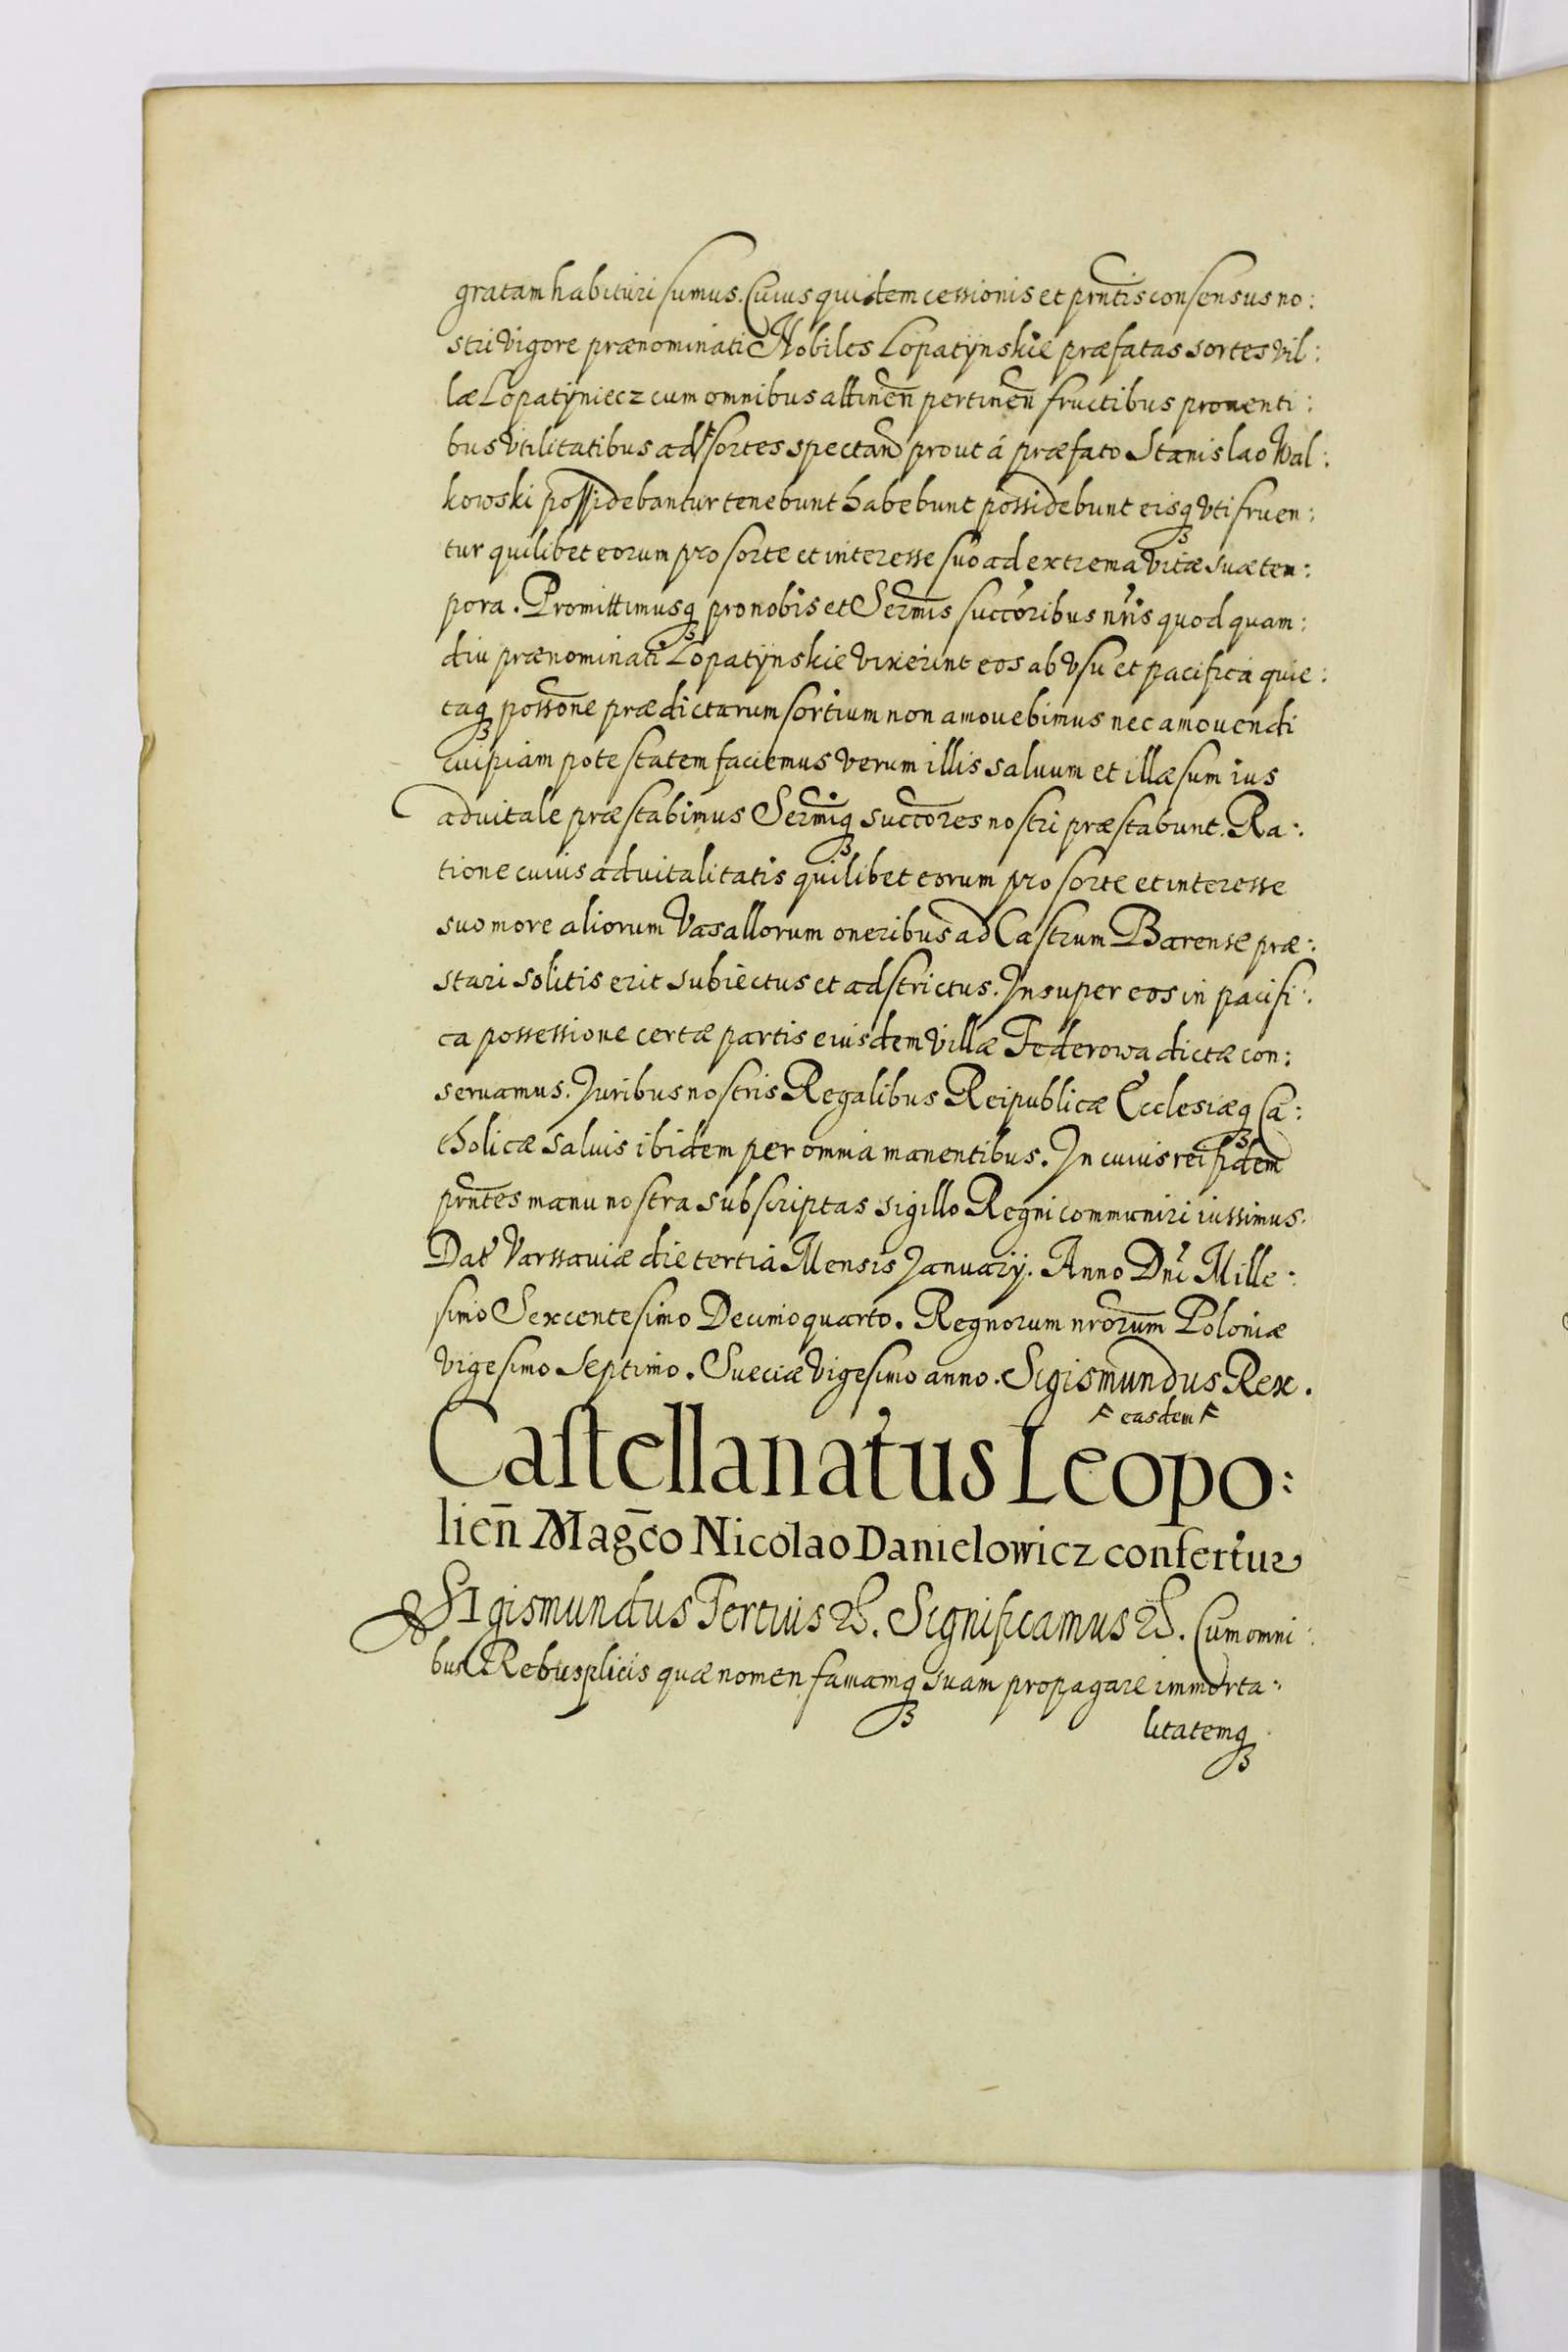 gratam habituri sumus. Cuius quidem cessionis et prntis consensus no:
stri vigore prænominati Nobiles Lopatÿnskie præfatas sortes vil:
læ Lopatÿniecz cum omnibus attinen̄ pertinen̄ fructibus proventi:
bus vtilitatibus ad sortes spectan̄ prout á præfato Stanislao Wal:
kowski possidebantur tenebunt habebunt possidebunt eisq3 vti fruen:
tur quilibet eorum pro sorte et interesse suo ad extrema vitæ suæ tem:
pora. Promittimusq3 pro nobis et Sermis succoribus nris quod quam:
diu prænominati Lopatÿnskie vixerint eos ab vsu et pacifica quie:
taq3 possone prædictarum sortium non amovebimus nec amovendi
cuipiam potestatem faciemus verum illis salvum et illæsum ius
advitale præstabimus Sermiq3 succores nostri præstabunt. Ra:
tione cuius advitalitatis quilibet eorum pro sorte et interesse
suo more aliorum Vasallorum oneribus ad Castrum Barense præ:
stari solitis erit subiectus et adstrictus. Insuper eos in pacifi:
ca possessione certæ partis eiusdem villæ Federowa dictæ con:
servamus. Juribus nostris Regalibus Reipublicæ Ecclesiæq3 Ca:
tholicæ salvis ibidem per omnia manentibus. In cuius rei fidem
prntes manu nostra subscriptas sigillo Regni communiri iussimus.
Dat Varssaviæ die tertia Mensis Januarij. Anno Dni Mille:
simo Sexcentesimo Decimo quarto. Regnorum nrorum Poloniæ
vigesimo septimo. Sveciæ vigesimo anno. Sigismundus Rex.
easdem
Castellanatus Leopo:
lien̄ Magco Nicolao Danielowicz confertur
Sigismundus Tertius &. Significamus &. Cum omni:
bus Rebusplicis quæ nomen famamq3 suam propagare immorta:
litatemq3